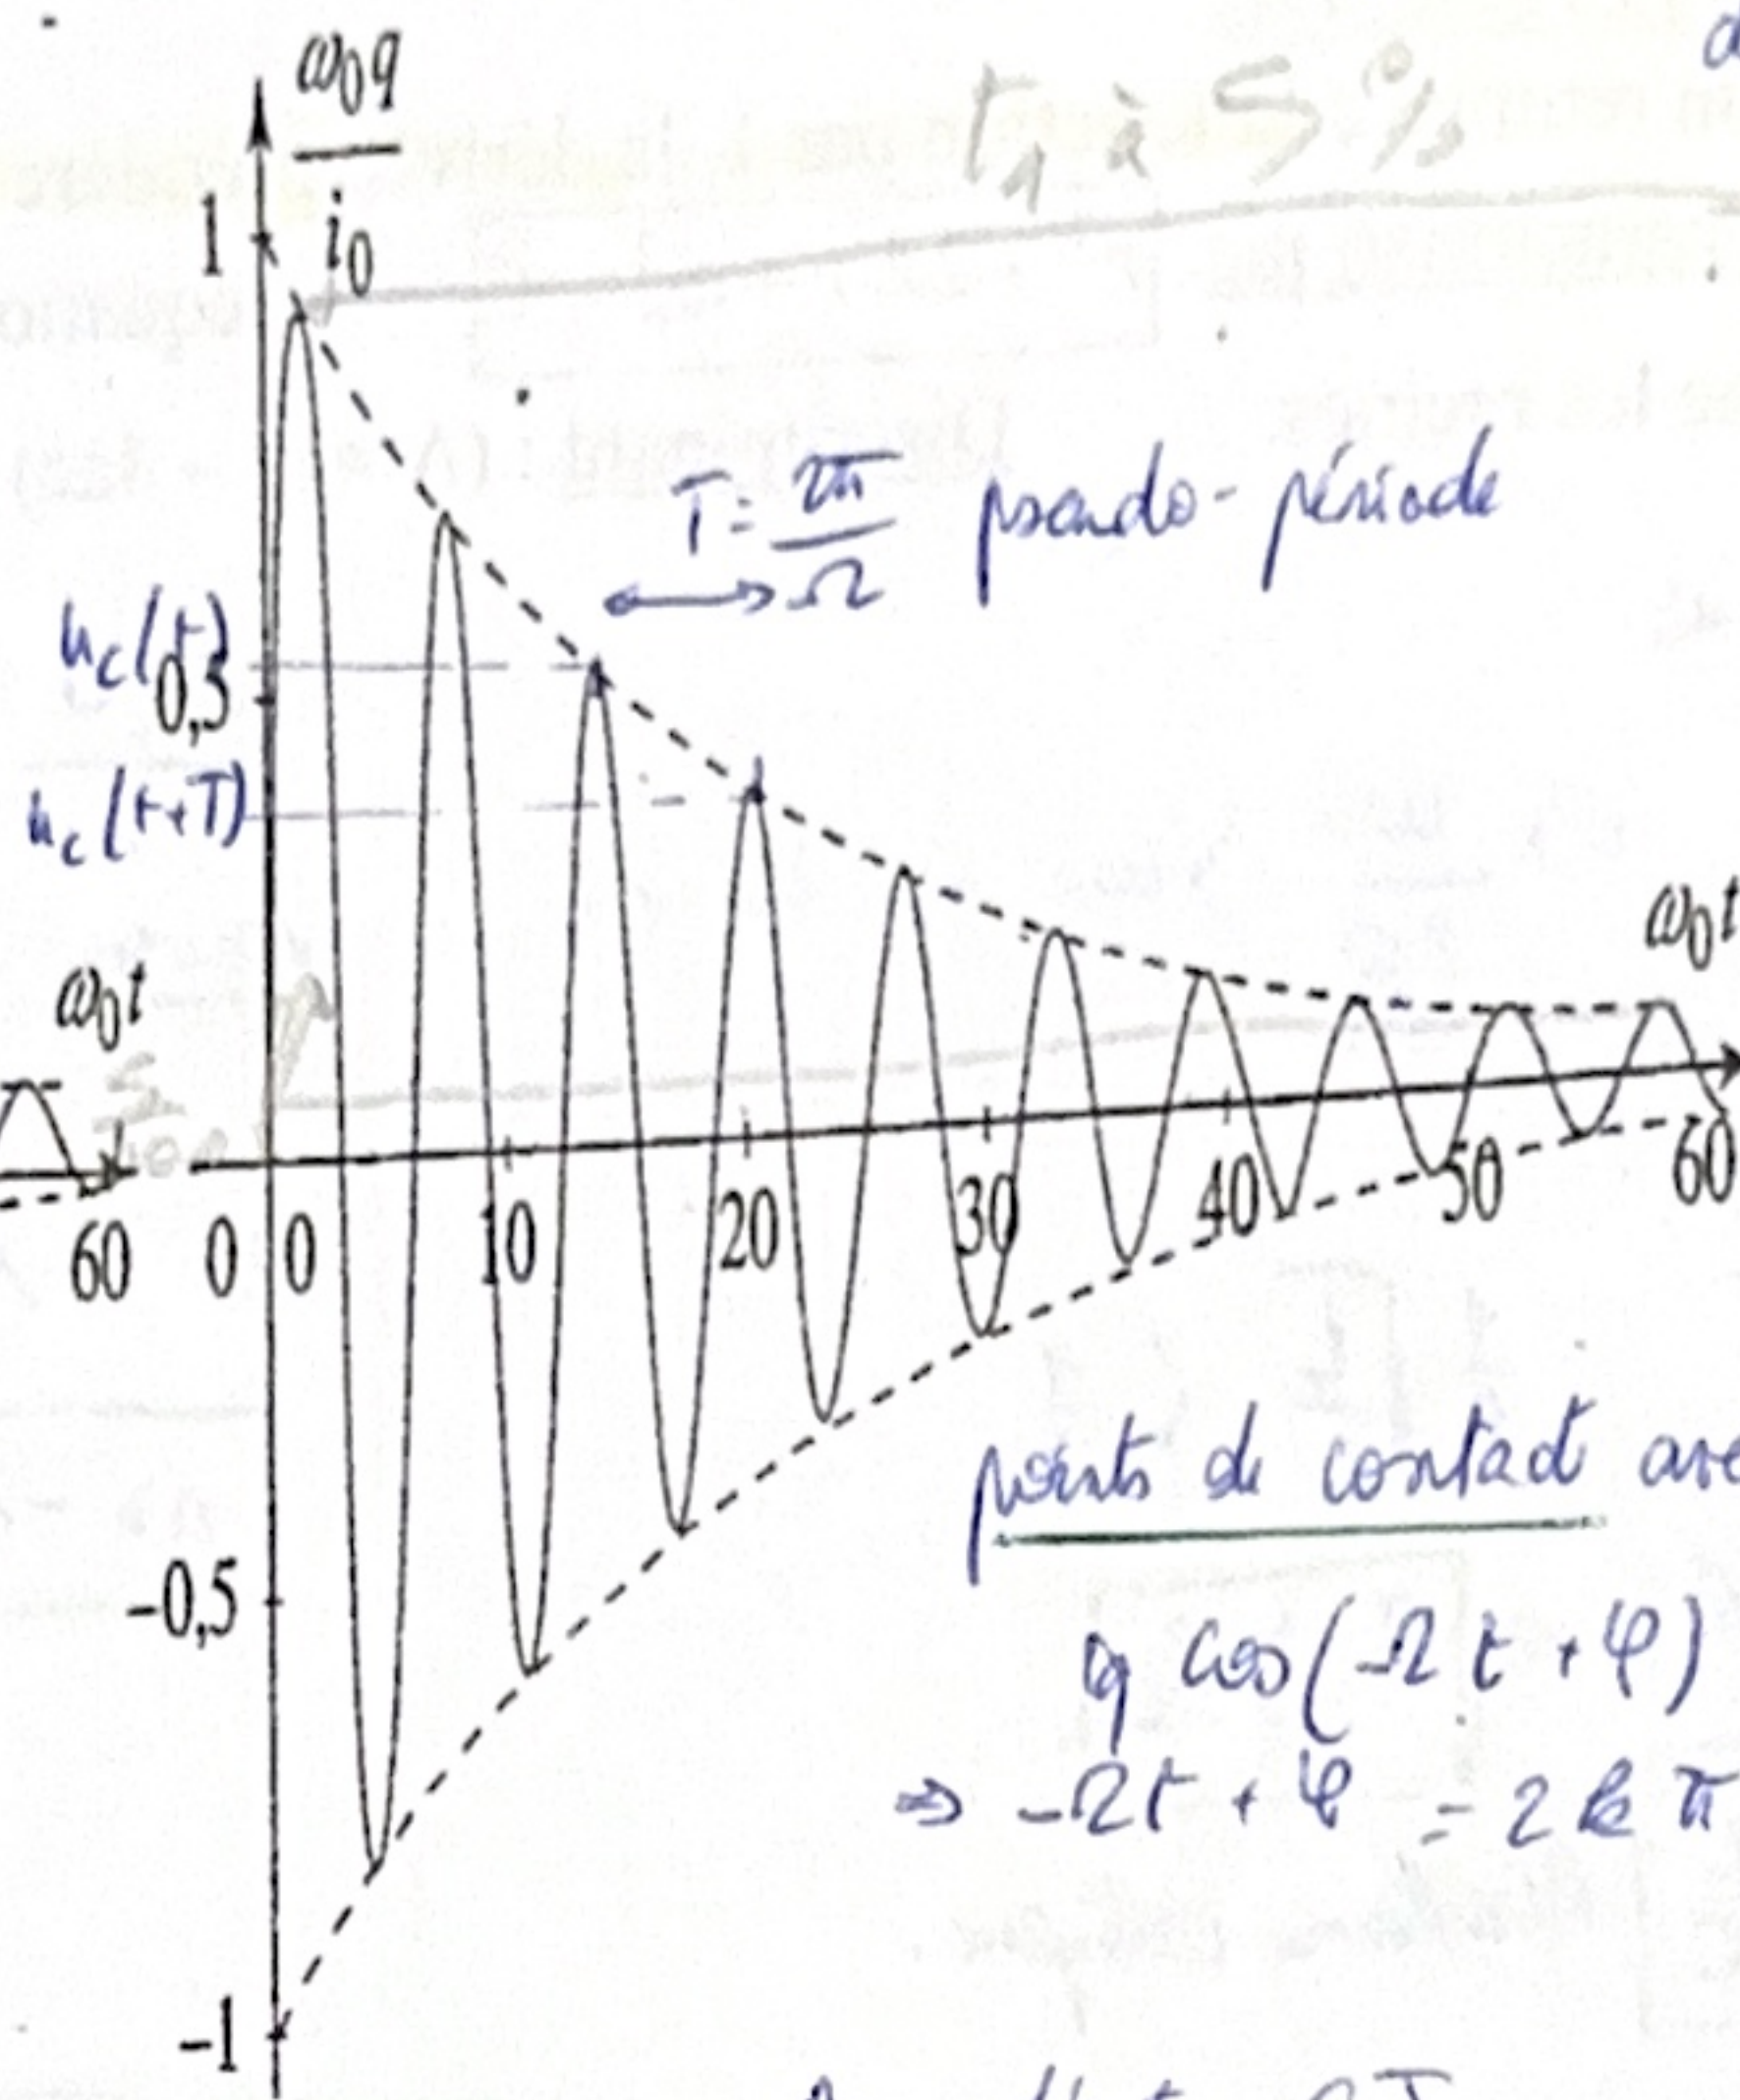 ω₀q
i₀
t₁ à 5%
1
T = 2π/Ω pseudo-période
u_c(t)
0,5
u_c(t+T)
ω₀t
ω₀t
5
100
60 0 0 10 20 30 40 50 60
points de contact
-0,5
cos(Ωt + φ)
⇒ Ωt + φ = 2kπ
-1